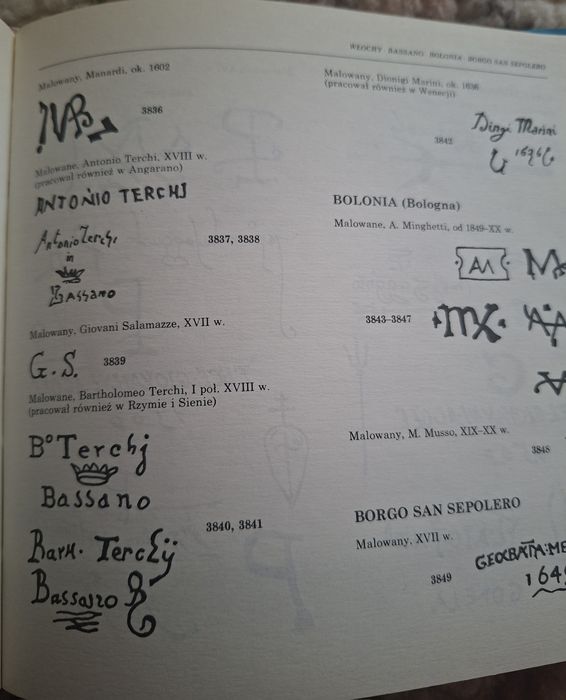 WŁOCHY · BASSANO · BOLONIA · BORGO SAN SEPOLERO
Malowany, Manardi, ok. 1602
3836
Malowane, Antonio Terchi, XVIII w.
(pracował również w Angarano)
ANTONIO TERCHJ
Antonio Terchi
in
Bassano
3837, 3838
Malowany, Giovani Salamazze, XVII w.
G. S.
3839
Malowane, Bartholomeo Terchi, I poł. XVIII w.
(pracował również w Rzymie i Sienie)
B° Terchj
Bassano
3840, 3841
Bassano
Malowany, Dionigi Marini, ok. 1636
(pracował również w Wenecji)
3842
Marini
BOLONIA (Bologna)
Malowane, A. Minghetti, od 1849–XX w.
AM
3843–3847
Malowany, M. Musso, XIX–XX w.
3848
BORGO SAN SEPOLERO
Malowany, XVII w.
3849